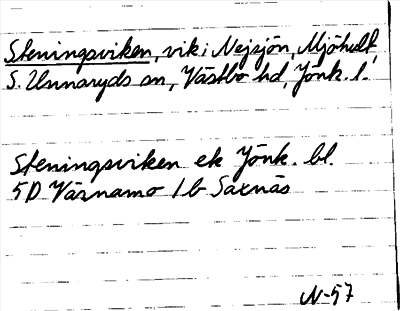 Steningsviken, vik i Nejsjön, Mjöhult,
S. Unnaryds sn, Västbo hd, Jönk. l.
Steningsviken ek Jönk. bl.
5D Värnamo 1b Saxnäs
N-57